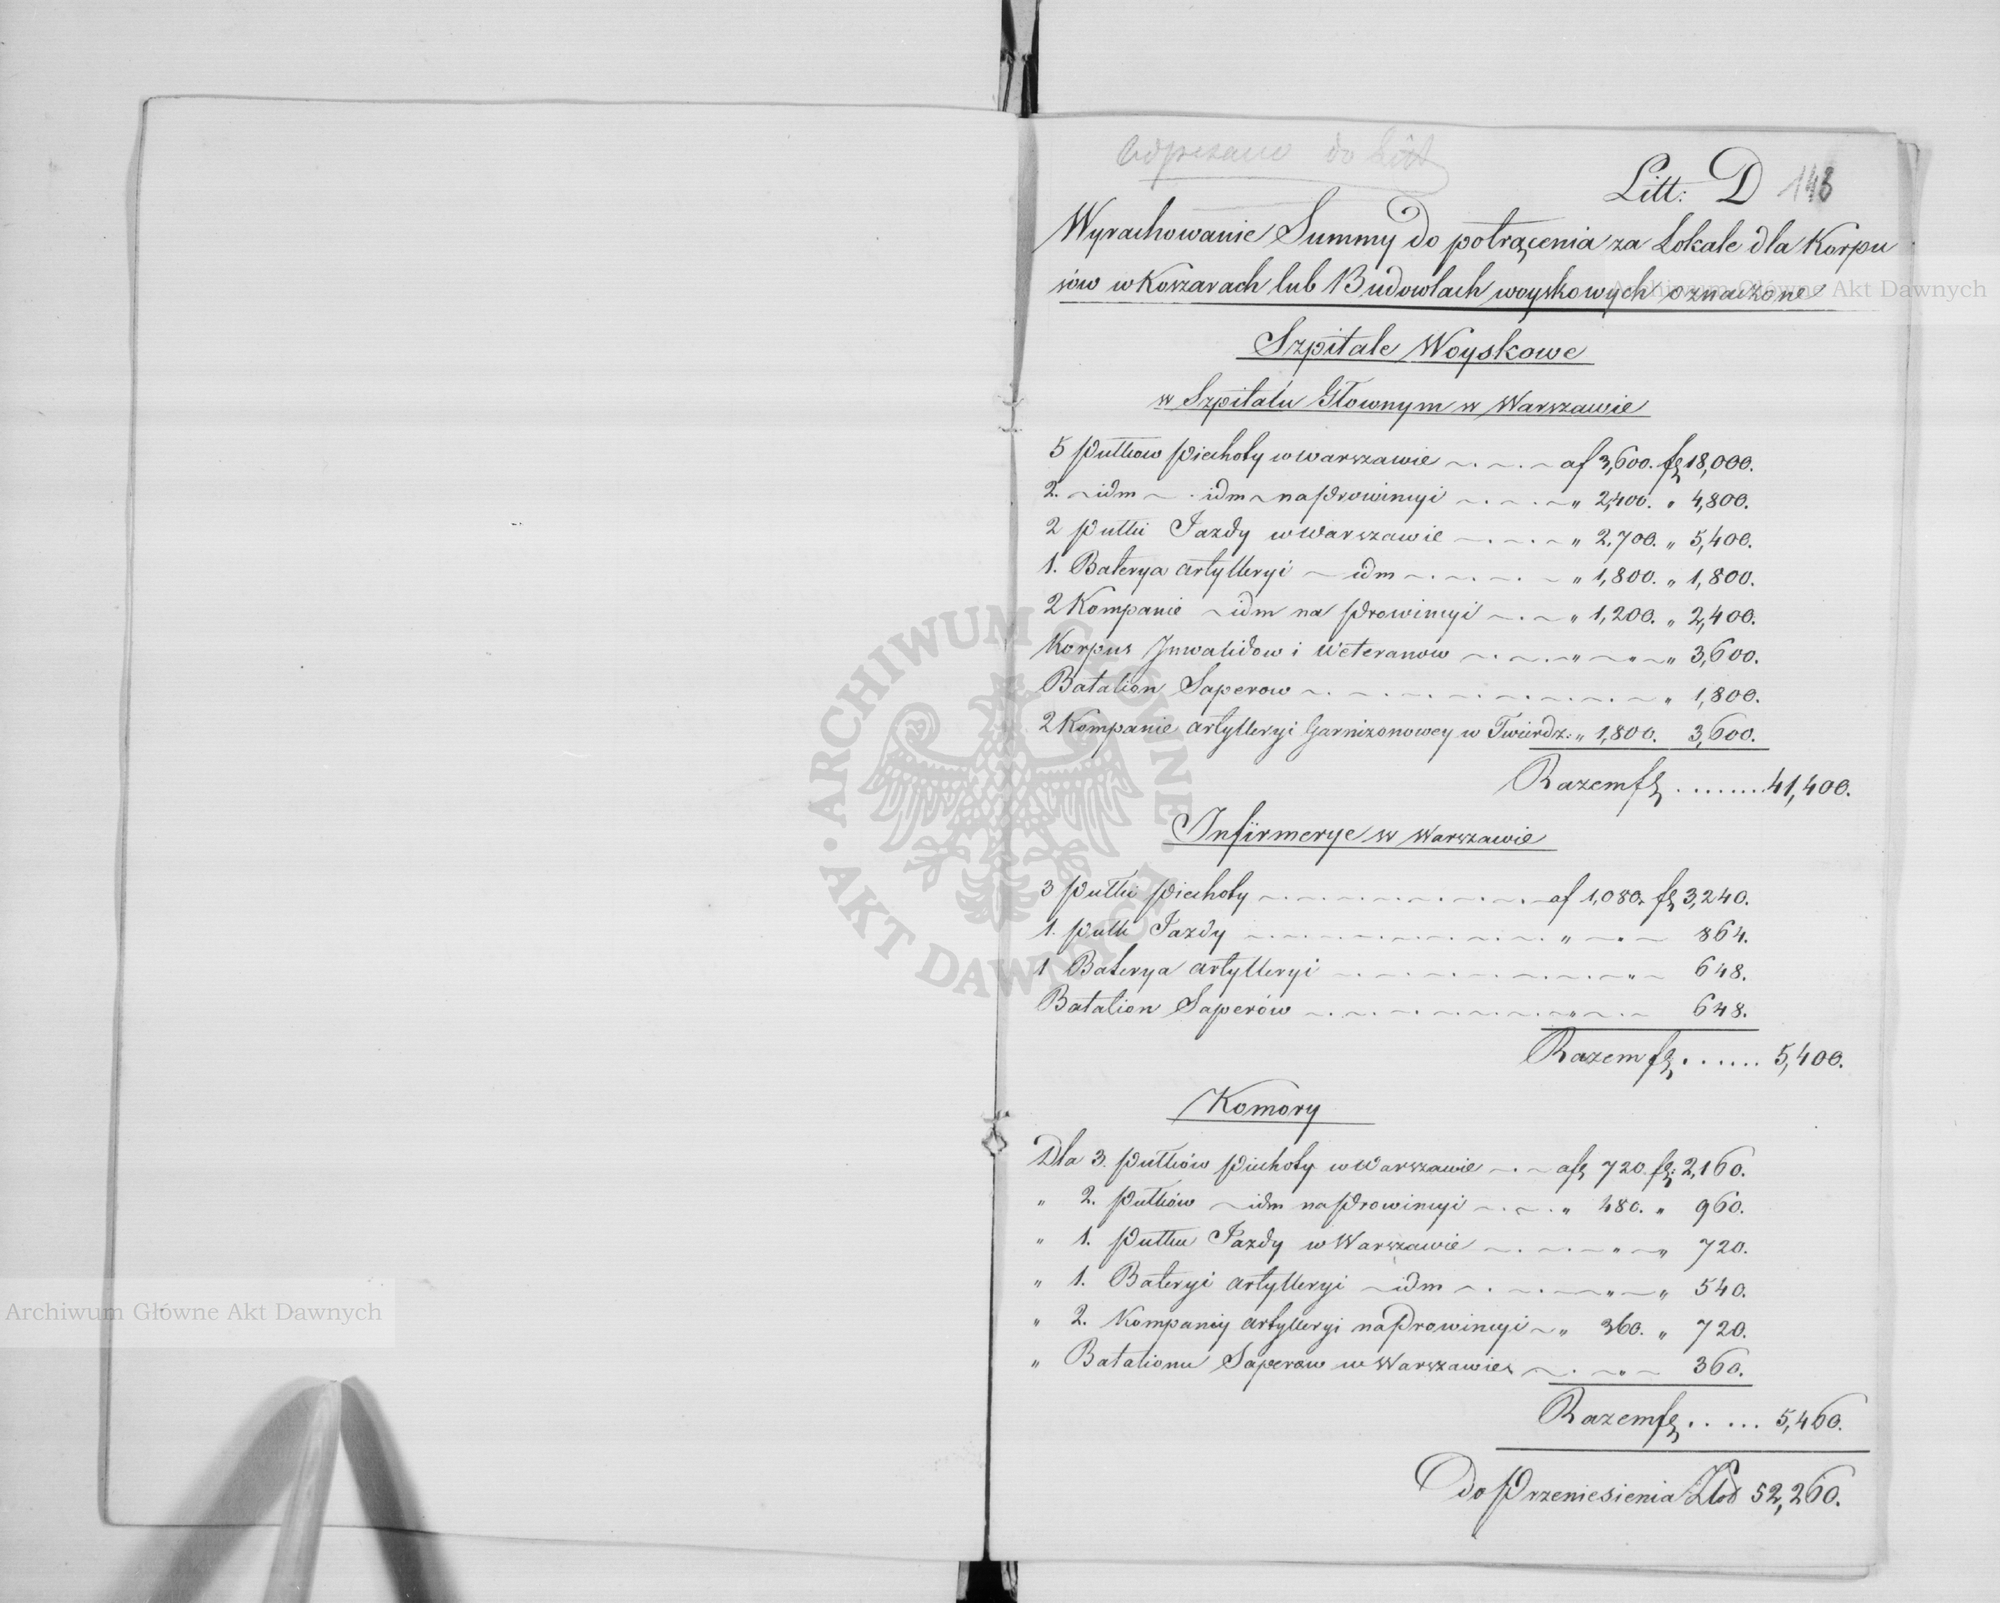 Litt: D 148
Wyrachowanie Summy do potrącenia za Lokale dla Korpu
sów w Koszarach lub Budowlach woyskowych oznaczone
Szpitale Woyskowe
w Szpitalu Głownym w Warszawie
5 Pułkow Piechoty w Warszawie af 3,600. fl 18,000.
2. idm idm na Prowincyi " 2,400. " 4,800.
2 Pułki Jazdy w Warszawie " 2,700. " 5,400.
1. Baterya Artylleryi idm " 1,800. " 1,800.
2 Kompanie idm na Prowincyi " 1,200. " 2,400.
Korpus Inwalidow i Weteranow " " " 3,600.
Batalion Saperow " 1,800.
2 Kompanie Artylleryi Garnizonowey w Twierdz: " 1,800. 3,600.
Razem fl ........ 41,400.
Infirmerye w Warszawie
3 Pułki Piechoty af 1,080. fl 3,240.
1. Pułk Jazdy " " 864.
1 Baterya Artylleryi " 648.
Batalion Saperów " 648.
Razem fl ...... 5,400.
Komory
Dla 3. Pułków Piechoty w Warszawie afl 720. fl: 2,160.
" 2. Pułków idm na Prowincyi " 480. " 960.
" 1. Pułku Jazdy w Warszawie " " 720.
" 1. Bateryi Artylleryi idm " " 540.
" 2. Kompaniy Artylleryi na Prowincyi " 360. " 720.
" Batalionu Saperow w Warszawie " 360.
Razem fl ..... 5,460.
do Przeniesienia Złod 52,260.
Archiwum Główne Akt Dawnych
Archiwum Główne Akt Dawnych
ARCHIWUM GŁÓWNE AKT DAWNYCH